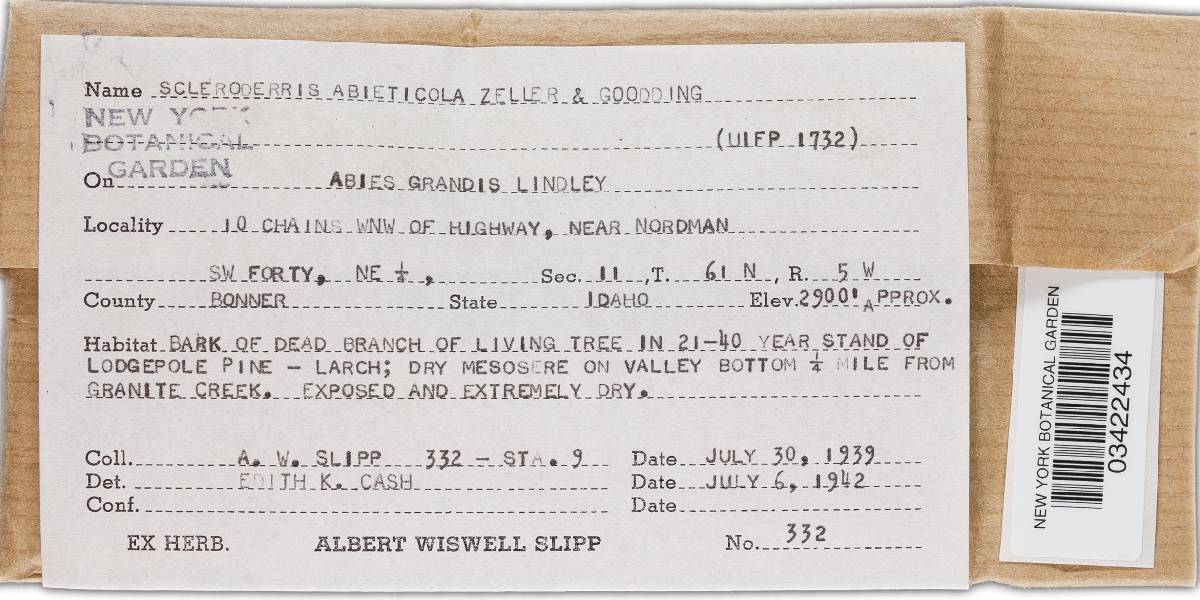 Name SCLERODERRIS ABIETICOLA ZELLER & GOODDING
NEW YORK
BOTANICAL
GARDEN
(UIFP 1732)
On ABIES GRANDIS LINDLEY
Locality 10 CHAINS WNW OF HIGHWAY, NEAR NORDMAN
SW FORTY, NE ¼, Sec. 11, T. 61 N, R. 5 W
County BONNER State IDAHO Elev. 2900' APPROX.
Habitat BARK OF DEAD BRANCH OF LIVING TREE IN 21-40 YEAR STAND OF
LODGEPOLE PINE - LARCH; DRY MESOSERE ON VALLEY BOTTOM ¼ MILE FROM
GRANITE CREEK. EXPOSED AND EXTREMELY DRY.
Coll. A. W. SLIPP 332 - STA. 9 Date JULY 30, 1939
Det. EDITH K. CASH Date JULY 6, 1942
Conf. Date
EX HERB. ALBERT WISWELL SLIPP No. 332
NEW YORK BOTANICAL GARDEN
03422434